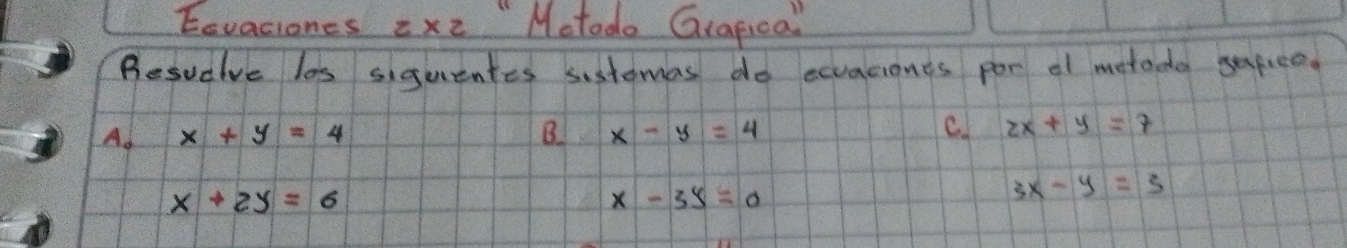 Ecuaciones 2x2 "Metodo Grafica"
Resuelve los siguientes sistemas de ecuaciones por el metodo grafico.
A. x + y = 4 B. x - y = 4 C. 2x + y = 7
x + 2y = 6 x - 3y = 0 3x - y = 3